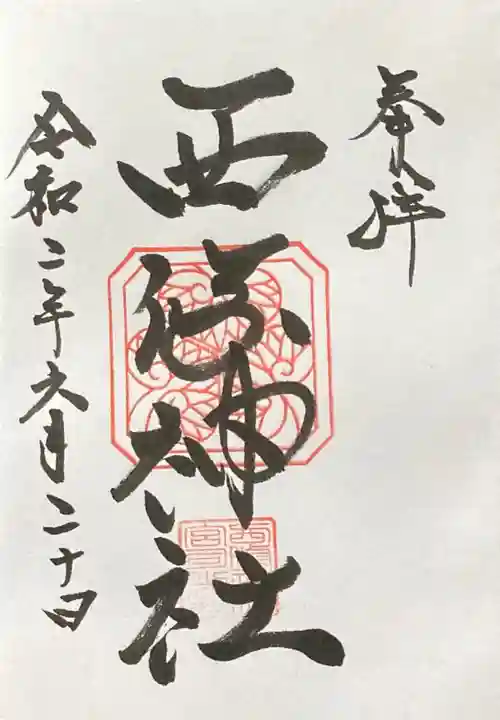 奉拝
西神社
令和二年六月二十日